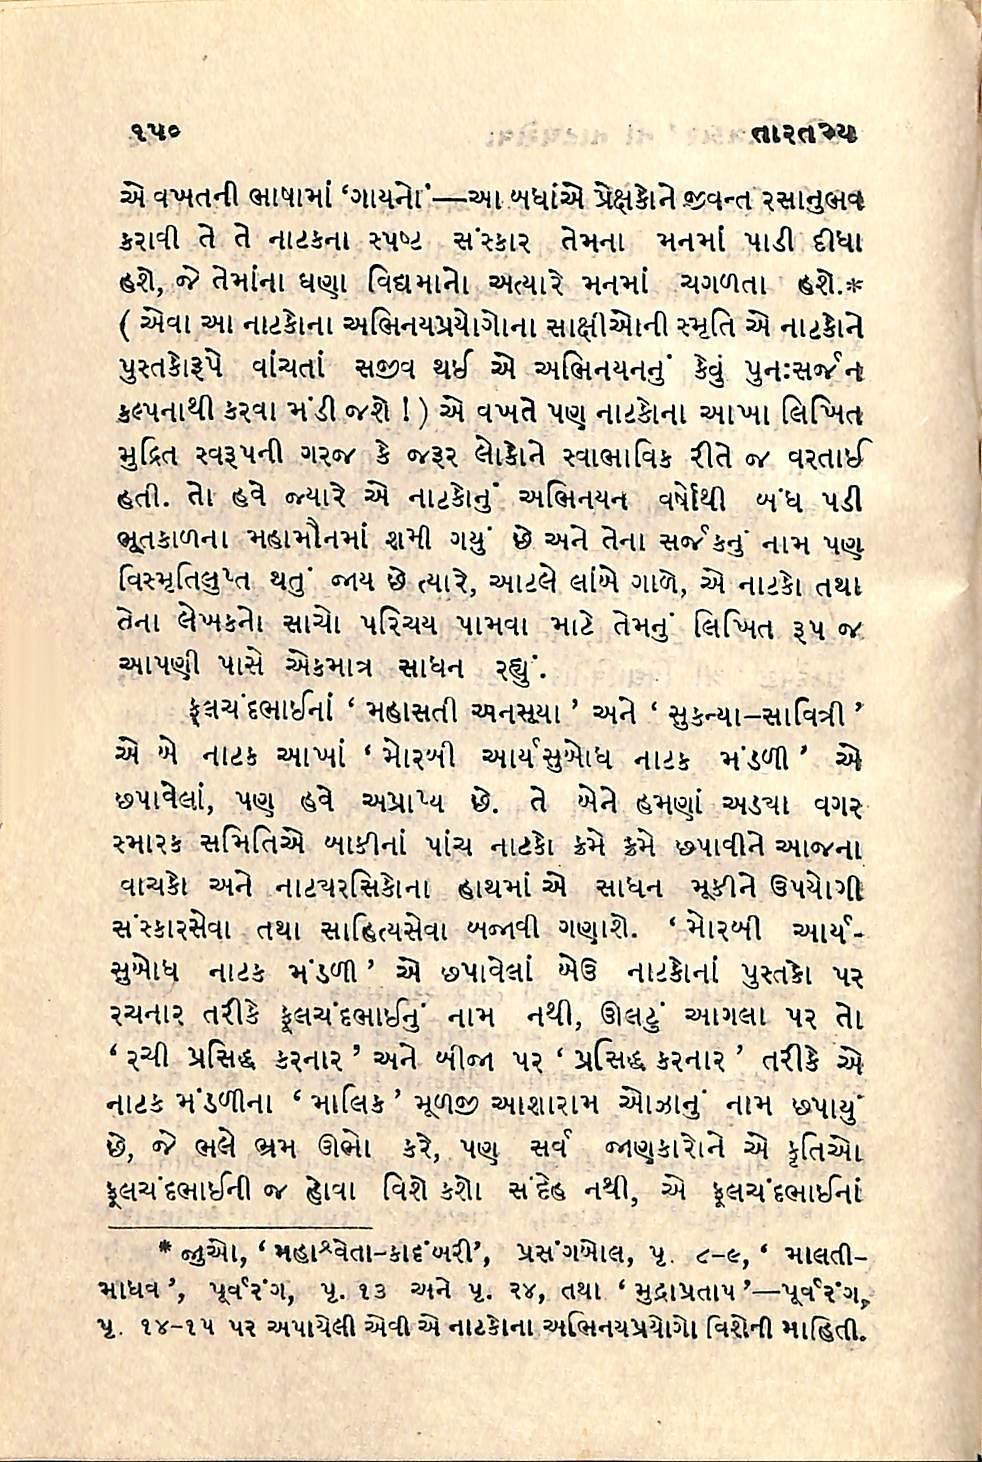 ૧૫૦ તારતમ્ય
એ વખતની ભાષામાં ‘ગાયનો’ં—આ બધાંએ પ્રેક્ષકોને જીવન્ત રસાનુભવ
કરાવી તે તે નાટકના સ્પષ્ટ સંસ્કાર તેમના મનમાં પાડી દીધા
હશે, જે તેમાંના ઘણા વિદ્યમાનો અત્યારે મનમાં ચગળતા હશે.*
( એવા આ નાટકોના અભિનયપ્રયોગોના સાક્ષીઓની સ્મૃતિ એ નાટકોને
પુસ્તકોરૂપે વાંચતાં સજીવ થઈ એ અભિનયનનું કેવું પુનઃસર્જન
કલ્પનાથી કરવા મંડી જશે ! ) એ વખતે પણ નાટકોના આખા લિખિત
મુદ્રિત સ્વરૂપની ગરજ કે જરૂર લોકોને સ્વાભાવિક રીતે જ વરતાઈ
હતી. તો હવે જ્યારે એ નાટકોનું અભિનયન વર્ષોથી બંધ પડી
ભૂતકાળના મહામૌનમાં શમી ગયું છે અને તેના સર્જકનું નામ પણ
વિસ્મૃતિલુપ્ત થતું જાય છે ત્યારે, આટલે લાંબે ગાળે, એ નાટકો તથા
તેના લેખકનો સાચો પરિચય પામવા માટે તેમનું લિખિત રૂપ જ
આપણી પાસે એકમાત્ર સાધન રહ્યું.
ફૂલચંદભાઈનાં ‘ મહાસતી અનસૂયા ’ અને ‘ સુકન્યા–સાવિત્રી ’
એ બે નાટક આખાં ‘ મોરબી આર્યસુબોધ નાટક મંડળી ’ એ
છપાવેલાં, પણ હવે અપ્રાપ્ય છે. તે બેને હમણાં અડ્યા વગર
સ્મારક સમિતિએ બાકીનાં પાંચ નાટકો ક્રમે ક્રમે છપાવીને આજના
વાચકો અને નાટ્યરસિકોના હાથમાં એ સાધન મૂકીને ઉપયોગી
સંસ્કારસેવા તથા સાહિત્યસેવા બજાવી ગણાશે. ‘ મોરબી આર્ય-
સુબોધ નાટક મંડળી ’ એ છપાવેલાં બેઉ નાટકોનાં પુસ્તકો પર
રચનાર તરીકે ફૂલચંદભાઈનું નામ નથી, ઊલટું આગલા પર તો
‘ રચી પ્રસિદ્ધ કરનાર ’ અને બીજા પર ‘ પ્રસિદ્ધ કરનાર ’ તરીકે એ
નાટક મંડળીના ‘ માલિક ’ મૂળજી આશારામ ઓઝાનું નામ છપાયું
છે, જે ભલે ભ્રમ ઊભો કરે, પણ સર્વ જાણકારોને એ કૃતિઓ
ફૂલચંદભાઈની જ હોવા વિશે કશો સંદેહ નથી, એ ફૂલચંદભાઈનાં
* જુઓ, ‘મહાશ્વેતા–કાદંબરી’, પ્રસંગબોલ, પૃ. ૮–૯, ‘ માલતી–
માધવ ’, પૂર્વરંગ, પૃ. ૧૩ અને પૃ. ૨૪, તથા ‘ મુદ્રાપ્રતાપ ’—પૂર્વરંગ,
પૃ. ૧૪–૧૫ પર અપાયેલી એવી એ નાટકોના અભિનયપ્રયોગો વિશેની માહિતી.